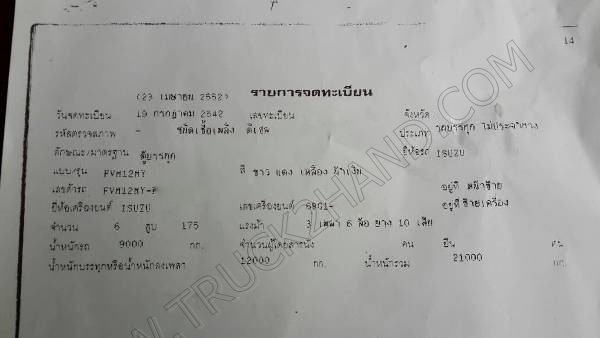 14
(23 เมษายน 2552) รายการจดทะเบียน
วันจดทะเบียน 19 กรกฎาคม 2542 เลขทะเบียน จังหวัด
รหัสตรวจสภาพ - ชนิดเชื้อเพลิง ดีเซล ประเภท รถบรรทุก ไม่ประจำทาง
ลักษณะ/มาตรฐาน ตู้บรรทุก ยี่ห้อรถ ISUZU
แบบ/รุ่น FVM12MY สี ขาว แดง เหลือง น้ำเงิน
เลขตัวรถ FVM12MY-P อยู่ที่ หน้าซ้าย
ยี่ห้อเครื่องยนต์ ISUZU เลขเครื่องยนต์ อยู่ที่ ซ้ายเครื่อง
จำนวน 6 สูบ 175 แรงม้า 3 เพลา 6 ล้อ ยาง 10 เส้น
น้ำหนักรถ 9000 กก. จำนวนผู้โดยสารนั่ง คน ยืน คน
น้ำหนักบรรทุกหรือน้ำหนักลงเพลา 12000 กก. น้ำหนักรวม 21000 กก.
WWW.TRUCK2HAND.COM